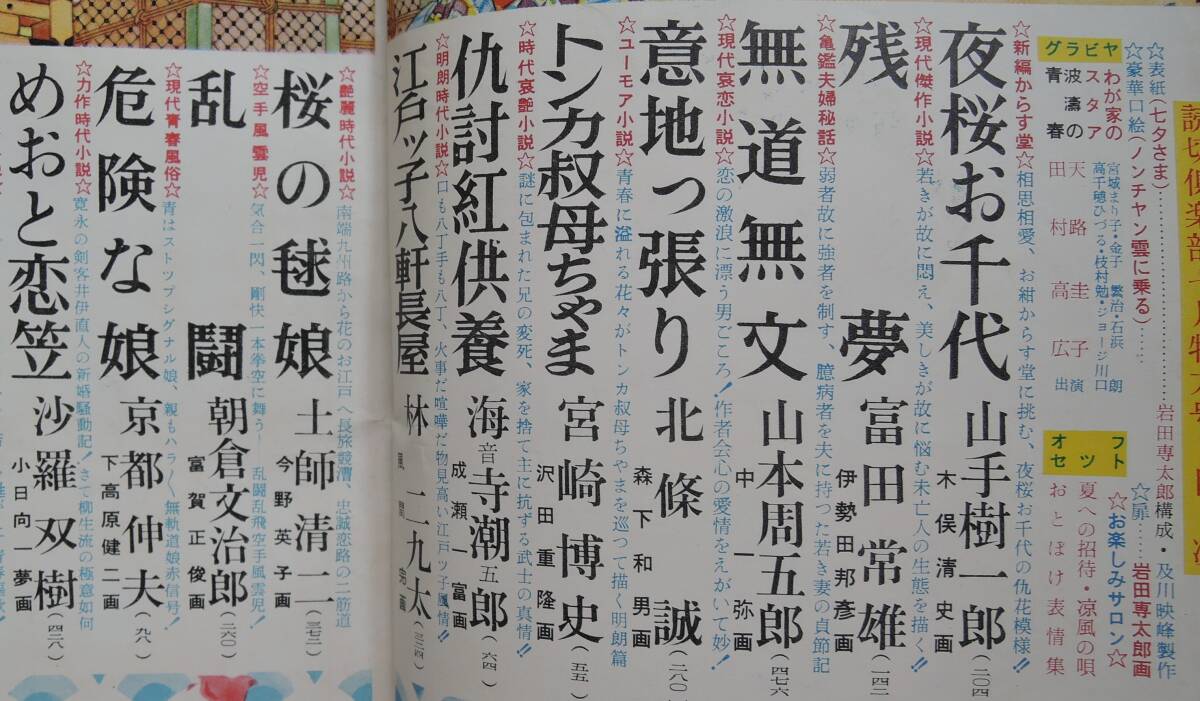 読切倶楽部
☆表紙(七夕さま)…………岩田専太郎構成・及川映峰製作
☆豪華口絵(ノンチャン雲に乗る)……
☆扉……岩田専太郎画
☆お楽しみサロン☆
グラビヤ
わが家のスタア
宮城まり子・金子繁治・石浜朗
高千穂ひづる・枝村勉・ジョージ川口
波濤の青春
天路圭子
田村高広
出演
オフセット
夏への招待・涼風の唄
おとぼけ表情集
☆新編からす堂☆相思相愛、お紺からす堂に挑む、夜桜お千代の仇花模様!!
夜桜お千代 山手樹一郎(二〇四)
木俣清史画
☆現代傑作小説☆若きが故に悶え、美しきが故に悩む未亡人の生態を描く!!
残夢 富田常雄(一四二)
伊勢田邦彦画
☆亀鑑夫婦秘話☆弱者故に強者を制す、臆病者を夫に持つた若き妻の貞節記
無道無文 山本周五郎(四七六)
中一弥画
☆現代哀恋小説☆恋の激浪に漂う男ごころ!作者会心の愛情をえがいて妙!
意地っ張り 北條誠(二八〇)
森下和男画
☆ユーモア小説☆青春に溢れる花々がトンカ叔母ちやまを巡つて描く明朗篇
トンカ叔母ちゃま 宮崎博史(五五)
沢田重隆画
☆時代哀艶小説☆謎に包まれた兄の変死、家を捨て主に抗する武士の真情!!
仇討紅供養 海音寺潮五郎(六四)
成瀬一富画
☆明朗時代小説☆口も八丁手も八丁、火事だ喧嘩だ物見高い江戸ッ子風情!!
江戸ッ子八軒長屋 林二九太(三二四)
風間完画
☆艶麗時代小説☆南端九州路から花のお江戸へ長旅競漕、忠誠恋路の二筋道
桜の毬娘 土師清二(三七二)
今野英子画
☆空手風雲児☆気合一閃、剛快一本拳空に舞う―乱闘乱飛空手風雲児!
乱闘 朝倉文治郎(二六〇)
富賀正俊画
☆現代青春風俗☆青はストツプシグナル娘、親もハラ〱無軌道娘赤信号!
危険な娘 京都伸夫(九八)
下高原健二画
☆力作時代小説☆寛永の剣客井伊直人の新婚騒動記!さて柳生流の極意如何
めおと恋笠 沙羅双樹(四二八)
小日向一夢画